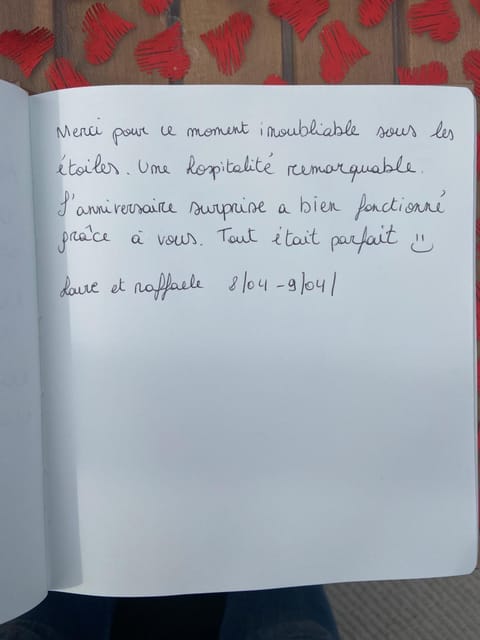 Merci pour ce moment inoubliable sous les
étoiles. Une hospitalité remarquable.
L'anniversaire surprise a bien fonctionné
grâce à vous. Tout était parfait :)
Laure et Raffaele 8/04 - 9/04/